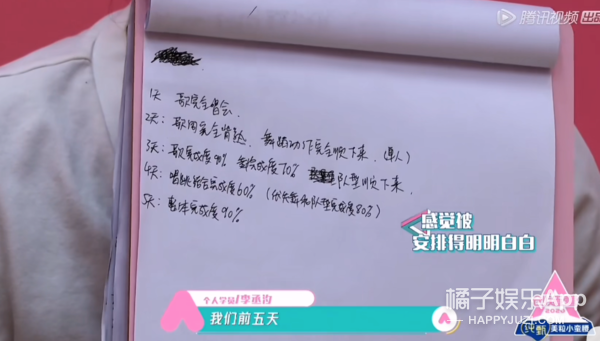 腾讯视频 出品
1天: 歌完全唱会.
2天: 歌词完全背熟. 舞蹈动作完全顺下来.(单人)
3天: 歌完成度90% 舞完成度70% 队型顺下来.
4天: 唱跳结合完成度60%
5天: 整体完成度90%
感觉被
安排得明明白白
个人学员/李丞汋
我们前五天
橘子娱乐App
HAPPYJUZI.COM
纯甄
美粒小蛮腰